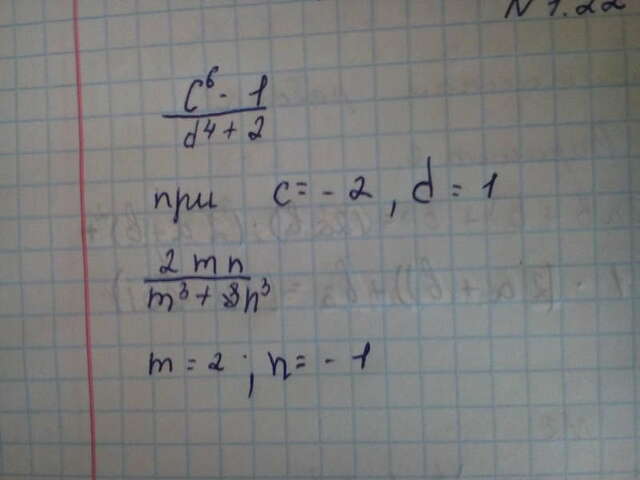 N 1.22
c⁶ - 1
d⁴ + 2
при c = - 2 , d = 1
2 m n
m³ + 3n³
m = 2 ; n = - 1